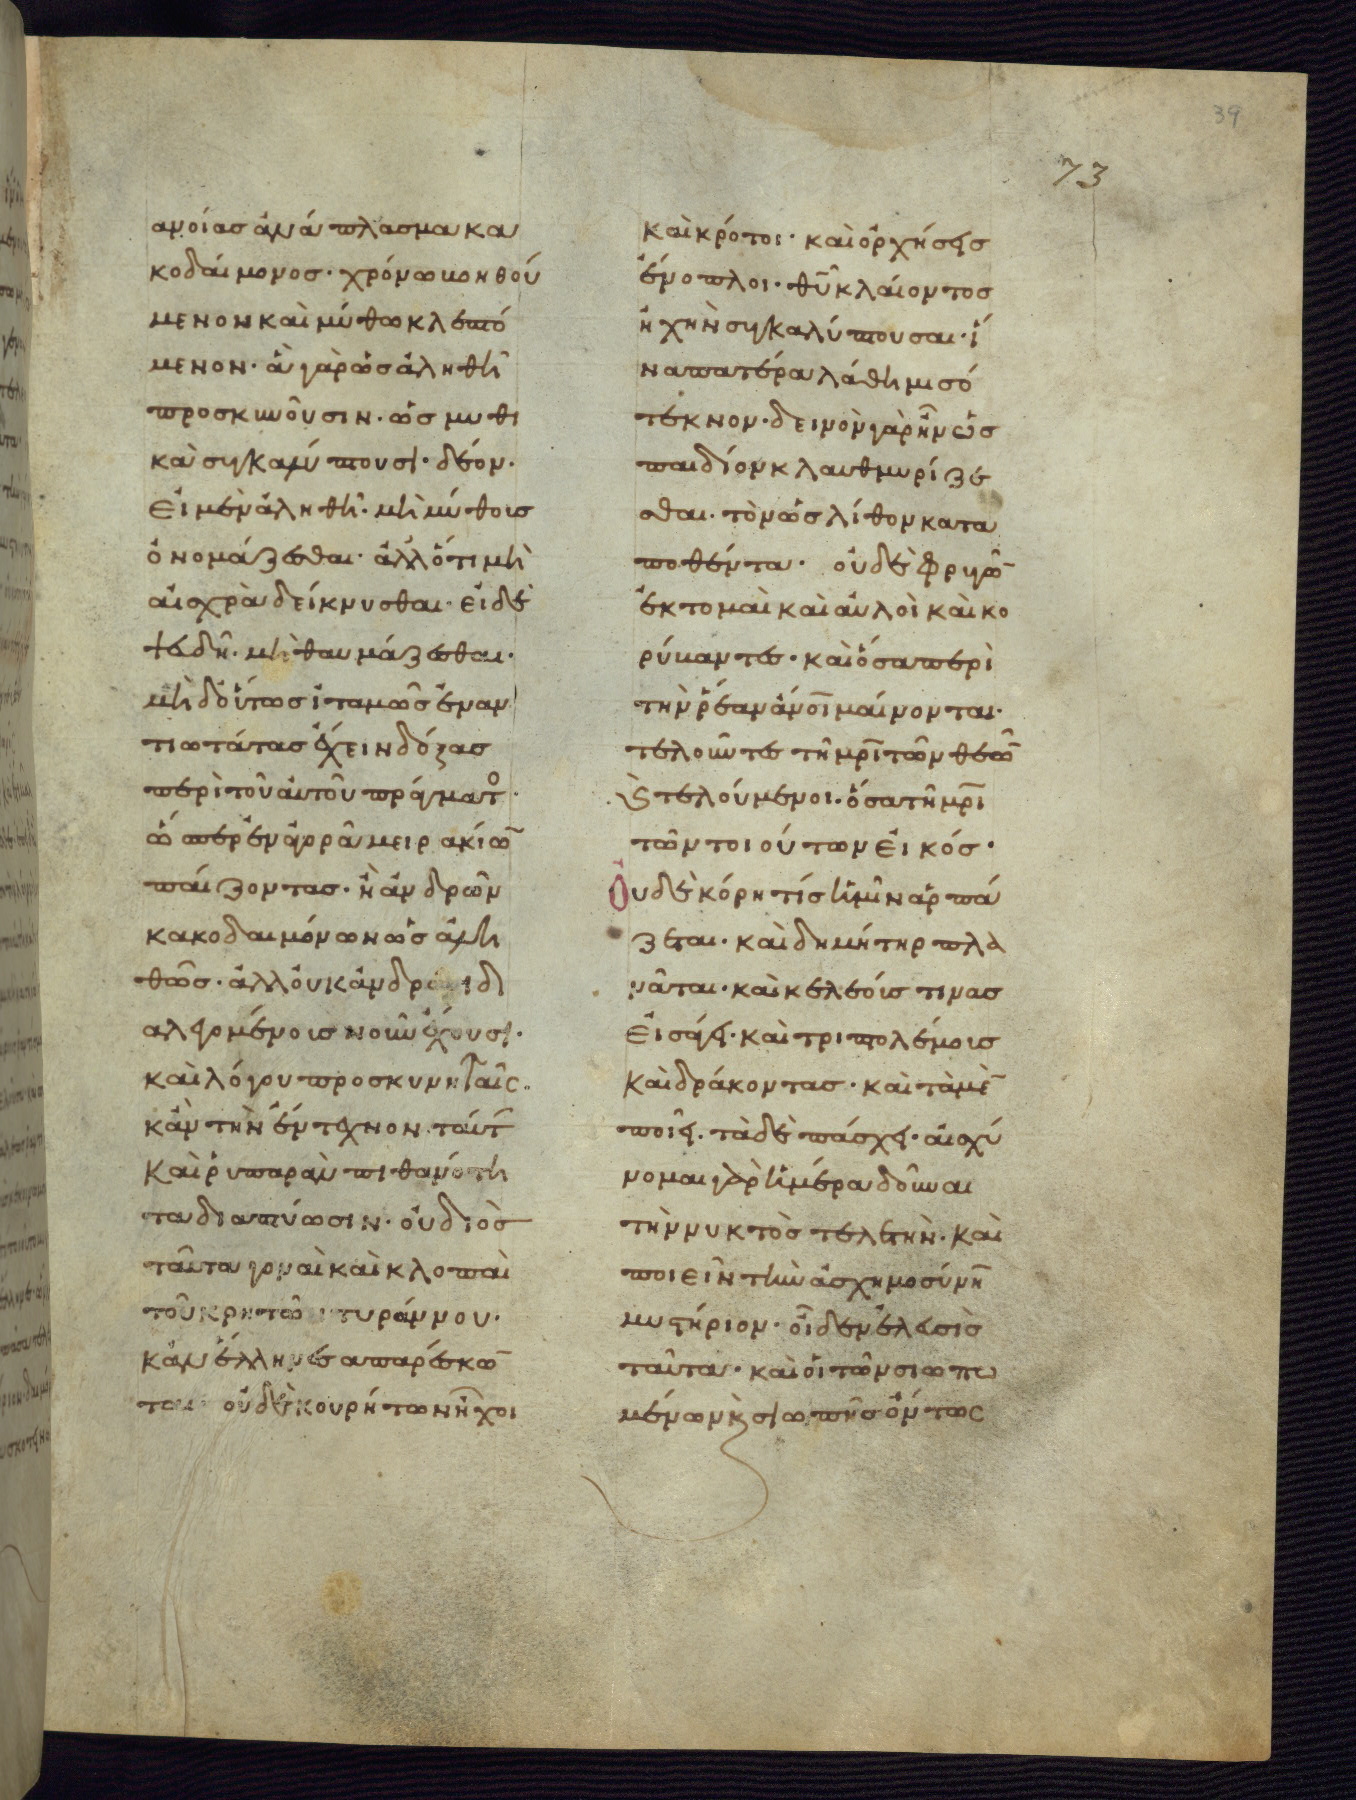 39
73
ανοίας ἀνάπλασμα κα
κοδαίμονος· χρόνω βοηθού
μενον καὶ μύθω κλεπτό
μενον· ἃ γὰρ ὡς ἀληθῆ
προσκυνοῦσιν· ὡς μυθι
κὰ συγκαλύπτουσι· δέον·
εἰ μὲν ἀληθῆ· μὴ μύθοις
ὀνομάζεσθαι· ἀλλ' ὅτι μὴ
αἰσχρὰ δείκνυσθαι· εἰ δὲ
ψεδῆ· μὴ θαυμάζεσθαι·
μὴ δ' οὕτως ἰταμῶς ἐναν
τιωτάτας ἔχειν δόξας
περὶ τοῦ αὐτοῦ πράγματο
ὥσπερ ἐν ἀγορᾶ μειρακίω
παίζοντας· ἢ ἀνδρῶν
κακοδαιμόνων ὡς ἀλη
θῶς· ἀλλ' οὐκ ἀνδρ δι
αλεγομένοις νοῦν ἔχουσι·
καὶ λόγου προσκυνηταῖς·
κἂν τὴν ἔντεχνον ταύτ
καὶ ῥυπαρὰν πιθανότη
τα διαπτύωσιν· οὐ διὸς
ταῦτα γοναὶ καὶ κλοπαὶ
τοῦ κρητῶ τυράννου·
κἂν ἕλληνες ἀπαρέσκω
ται οὐδὲ κουρήτων ἦχοι
καὶ κρότοι· καὶ ὀρχήσεις
ἔνοπλοι· θῦ κλαίοντος
ἠχὴν συγκαλύπτουσαι· ἵ
να πατέρα λάθη μισό
τεκνον· δεινὸν γὰρ ἦν ὡς
παιδίον κλαυθμυρίζε
σθαι· τὸν ὡς λίθον κατα
ποθέντα· οὐδὲ φρυγῶ
ἐκτομαὶ καὶ αὐλοὶ καὶ κο
ρύβαντες· καὶ ὅσα περὶ
τὴν ῥέαν ἄνοι μαίνονται·
τελοῦντες τῆ μρὶ τῶν θεῶ
καὶ τελούμενοι· ὅσα τῆ μρὶ
τῶν τοιούτων εἰκός·
Οὐδὲ κόρη τίς ἡμῖν ἁρπά
ζεται· καὶ δημήτηρ πλα
νᾶται· καὶ κελεοὺς τινας
εἰσάγει· καὶ τριπολέμους
καὶ δράκοντας· καὶ τὰ μὲ
ποιεῖ· τὰ δὲ πάσχει· αἰσχύ
νομαι γὰρ ἡμέρα δοῦναι
τὴν νυκτὸς τελετὴν· καὶ
ποιεῖν τὴν ἀσχημοσύνη
μυστήριον· οἶδεν ἐλευσὶς
ταῦτα· καὶ οἱ τῶν σιωπω
μένων καὶ σιωπῆς ὄντως